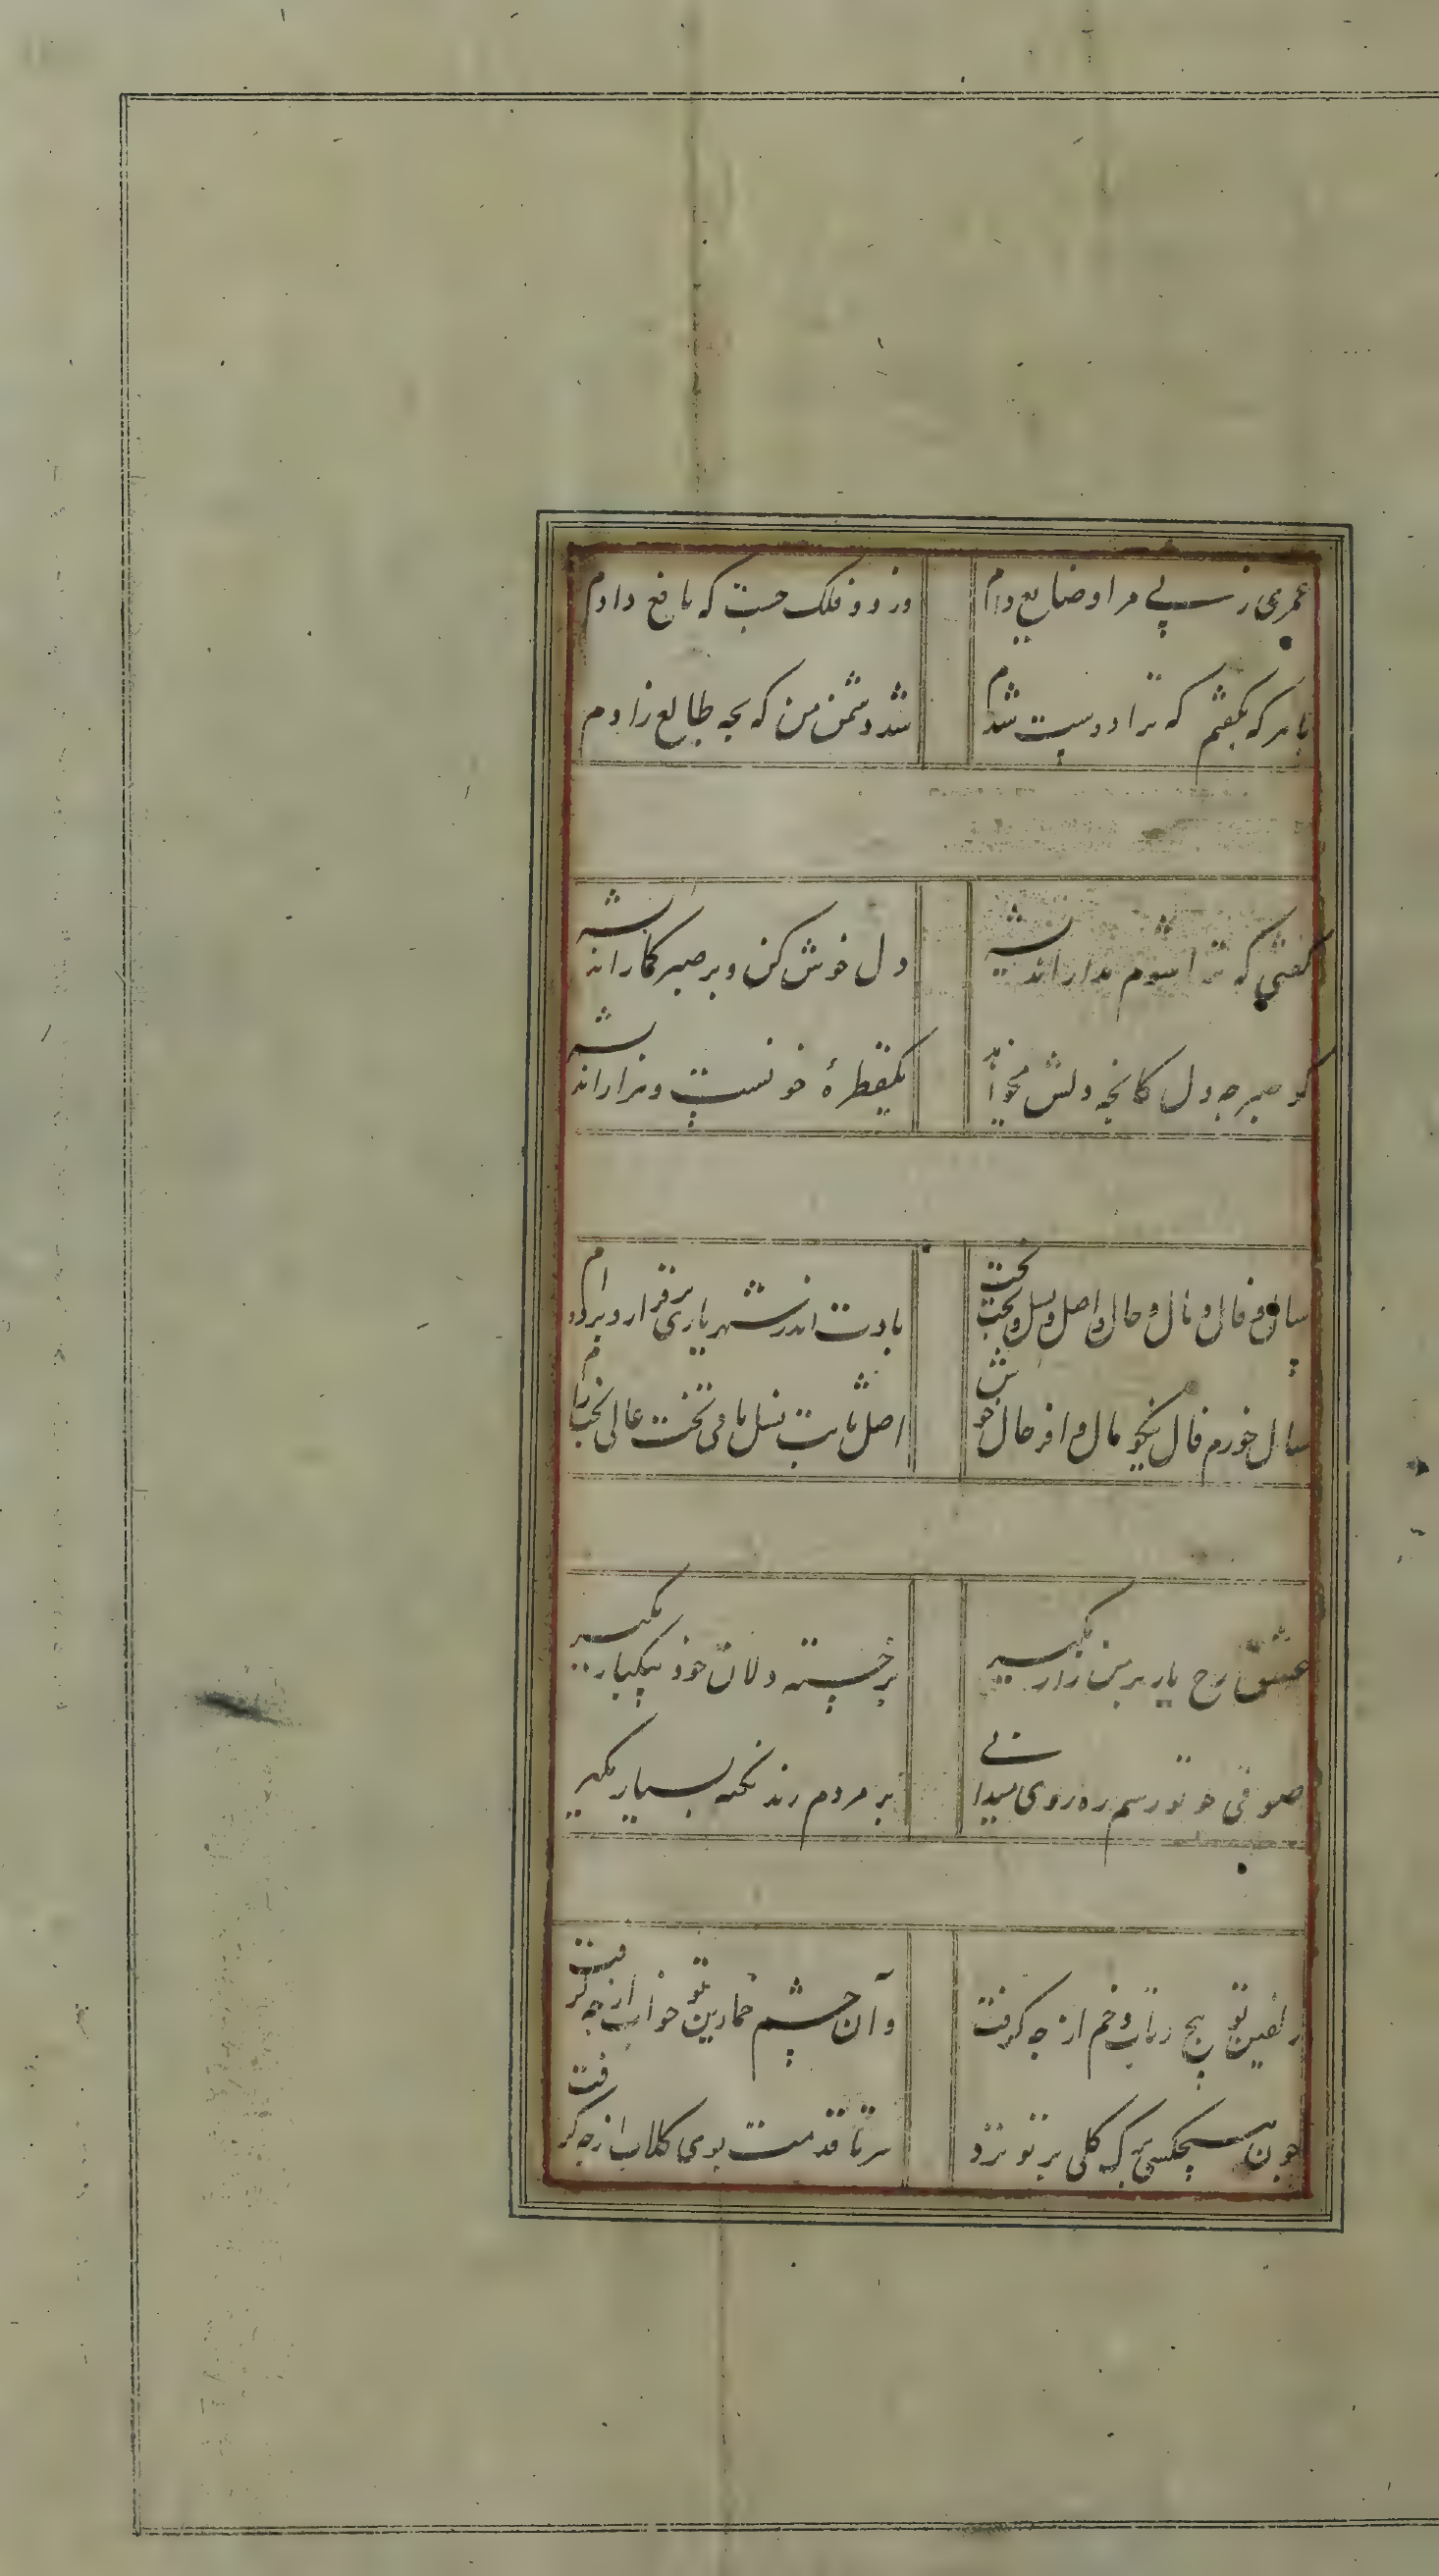 عمری ز پی مراد ضایع دارم    وز دور فلک چیست که نافع دارم
با هر که بگفتم که ترا دوست شدم    شد دشمن من که چه طالع دارم
گفتی که ترا شوم مدار اندیشه    دل خوش کن و بر صبر گمار اندیشه
کو صبر چه دل کانچه دلش میخوانند    یکقطرهٔ خونست و هزار اندیشه
سال و فال و مال و حال و اصل و نسل و بخت و تخت    بادت اندر شهریاری برقرار و بر دوام
سال خورم فال نیکو مال وافر حال خوش    اصل ثابت نسل باقی تخت عالی بخت رام
عشق رخ یار بر من زار مگیر    بر خسته دلان خود بیکبار مگیر
صوفی چو تو رسم رهروی میدانی    بر مردم رند نکته بسیار مگیر
زلفین تو پیچ و تاب و خم از چه گرفت    وآن چشم خمارین تو خواب از چه گرفت
چون هیچکسی برگ گلی بر تو نزد    سر تا قدمت بوی گلاب از چه گرفت